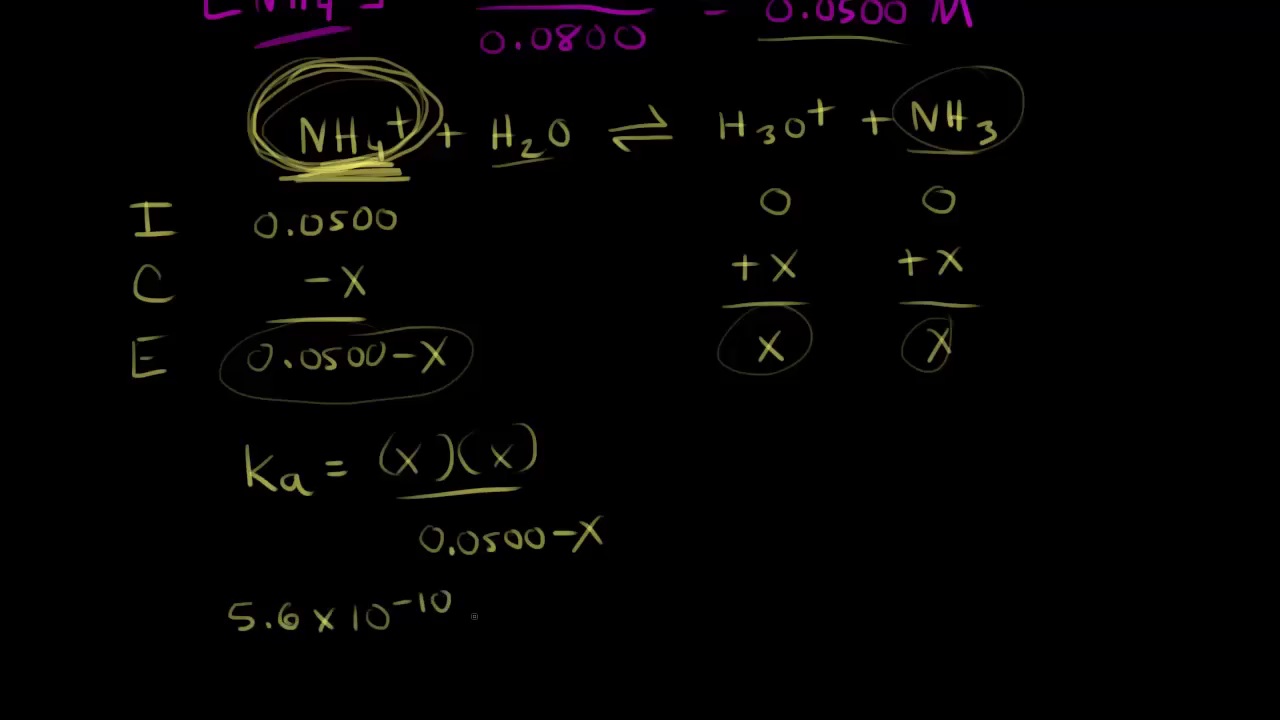 [NH4 ] = 0.0500 M
0.0800
NH4+ + H2O ⇌ H3O+ + NH3
I 0.0500 0 0
C -X +X +X
E 0.0500-X X X
Ka = (X)(X)
0.0500-X
5.6 x 10^-10